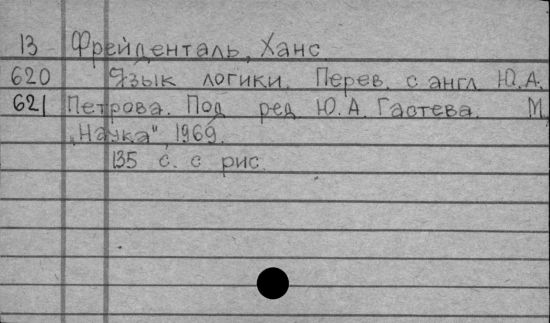 13 Фрейденталь, Ханс
620 Язык логики. Перев. с англ Ю.А.
621 Петрова. Под ред Ю.А. Гастева. М
„Наука", 1969.
135 с. с рис.